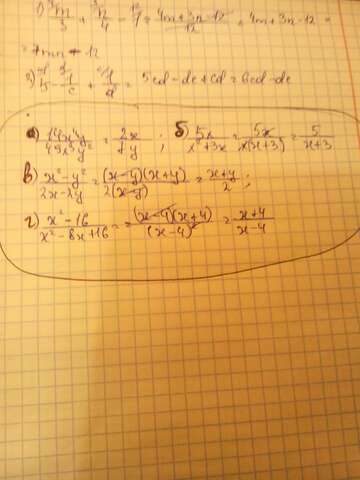 1) m/3 + n/4 - 1 = (4m+3n-12)/12 = 4m+3n-12 =
12
= 5cd-de+cd = 6cd-de
а) 14x⁴y/49x³y² = 2x/7y ; б) 5x/x²+3x = 5x/x(x+3) = 5/x+3
в) x²-y²/2x-2y = (x-y)(x+y)/2(x-y) = x+y/2 ;
г) x²-16/x²-8x+16 = (x-4)(x+4)/(x-4)² = x+4/x-4